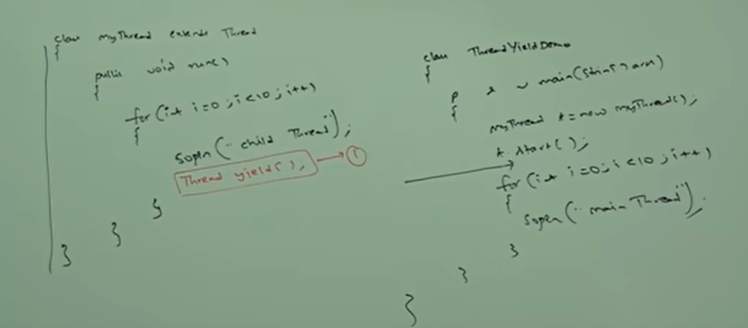 class myThread extends Thread
{
public void run()
{
for(int i=0;i<10;i++)
{
Sopln("child Thread");
Thread yield(); → ①
}
}
}
class ThreadYieldDemo
{
p s v main(String[] args)
{
myThread t=new myThread();
t.start();
for(int i=0;i<10;i++)
{
Sopln("main Thread");
}
}
}